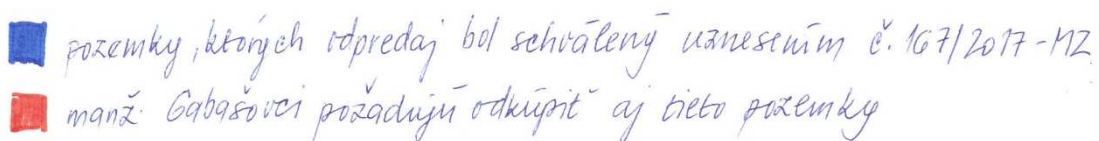 pozemky, ktorých odpredaj bol schválený uznesením č. 167/2017-MZ
manž. Gabašovci požadujú odkúpiť aj tieto pozemky